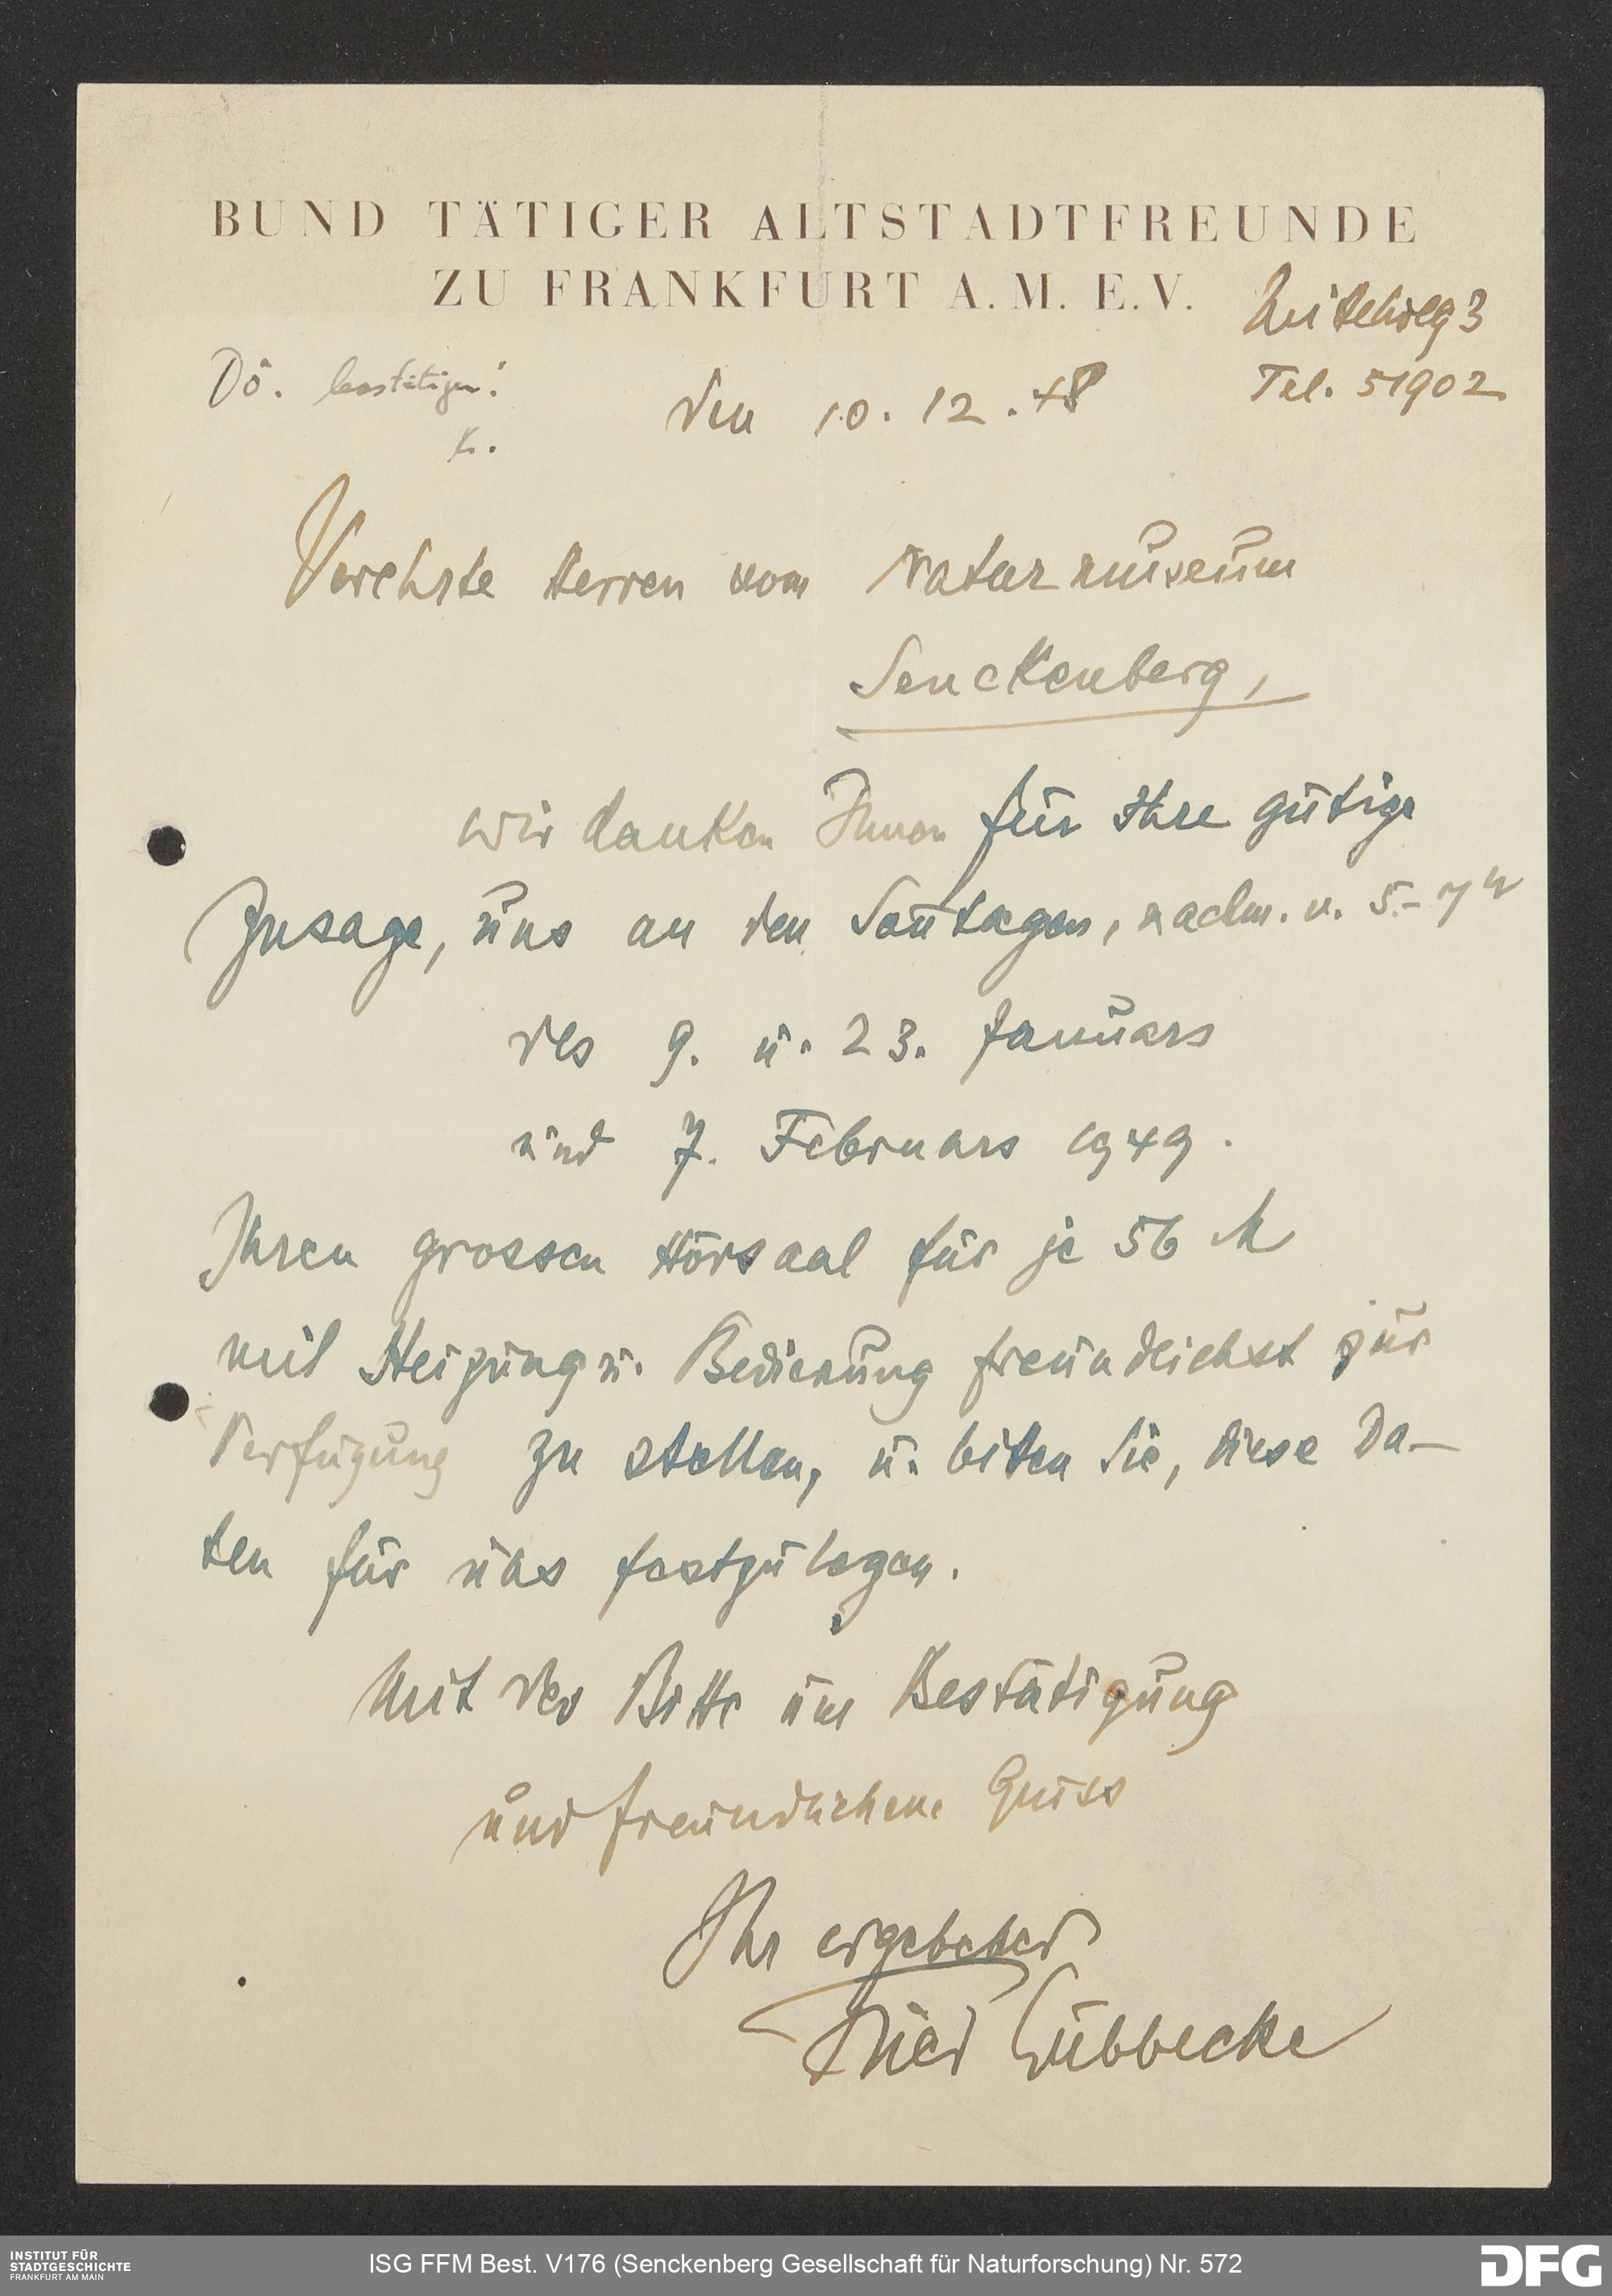 BUND TÄTIGER ALTSTADTFREUNDE
ZU FRANKFURT A. M. E. V.
Mittelweg 3
Tel. 51902
Dö. bestätigen!
K.
den 10. 12. 48
Verehrte Herren vom Naturmuseum
Senckenberg,
wir danken Ihnen für Ihre gütige
Zusage, uns an den Sonntagen, nachm. v. 5-7 h
des 9. u. 23. Januars
und 7. Februars 1949.
Ihren grossen Hörsaal für je 56 M
mit Heizung u. Bedienung freundlichst zur
Verfügung zu stellen, u. bitten Sie, diese Da-
ten für uns festzulegen.
Mit der Bitte um Bestätigung
und freundlichem Gruss
Ihr ergebener
Fried Lübbecke
INSTITUT FÜR
STADTGESCHICHTE
FRANKFURT AM MAIN
ISG FFM Best. V176 (Senckenberg Gesellschaft für Naturforschung) Nr. 572
DFG